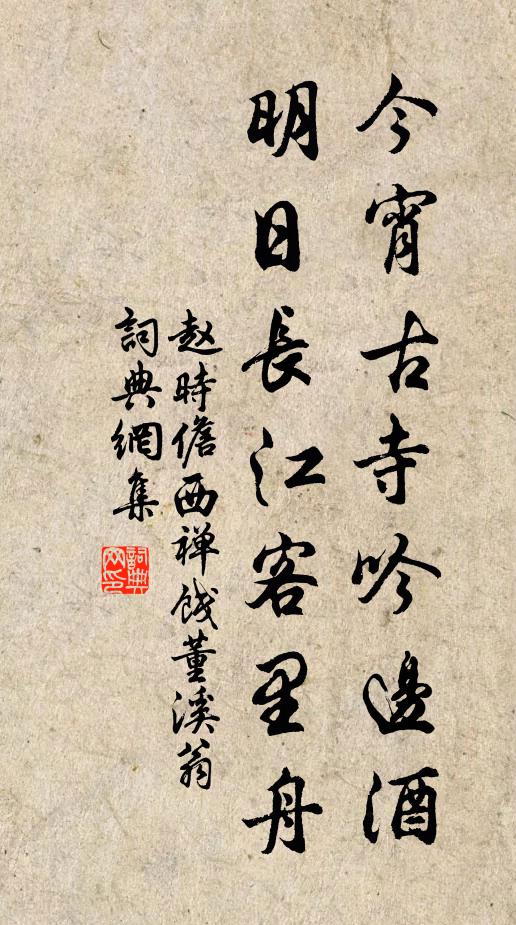 今宵古寺吟邊酒
明日長江客里舟
赵時儋西禅餞董溪翁
詞典網集
詞典网印